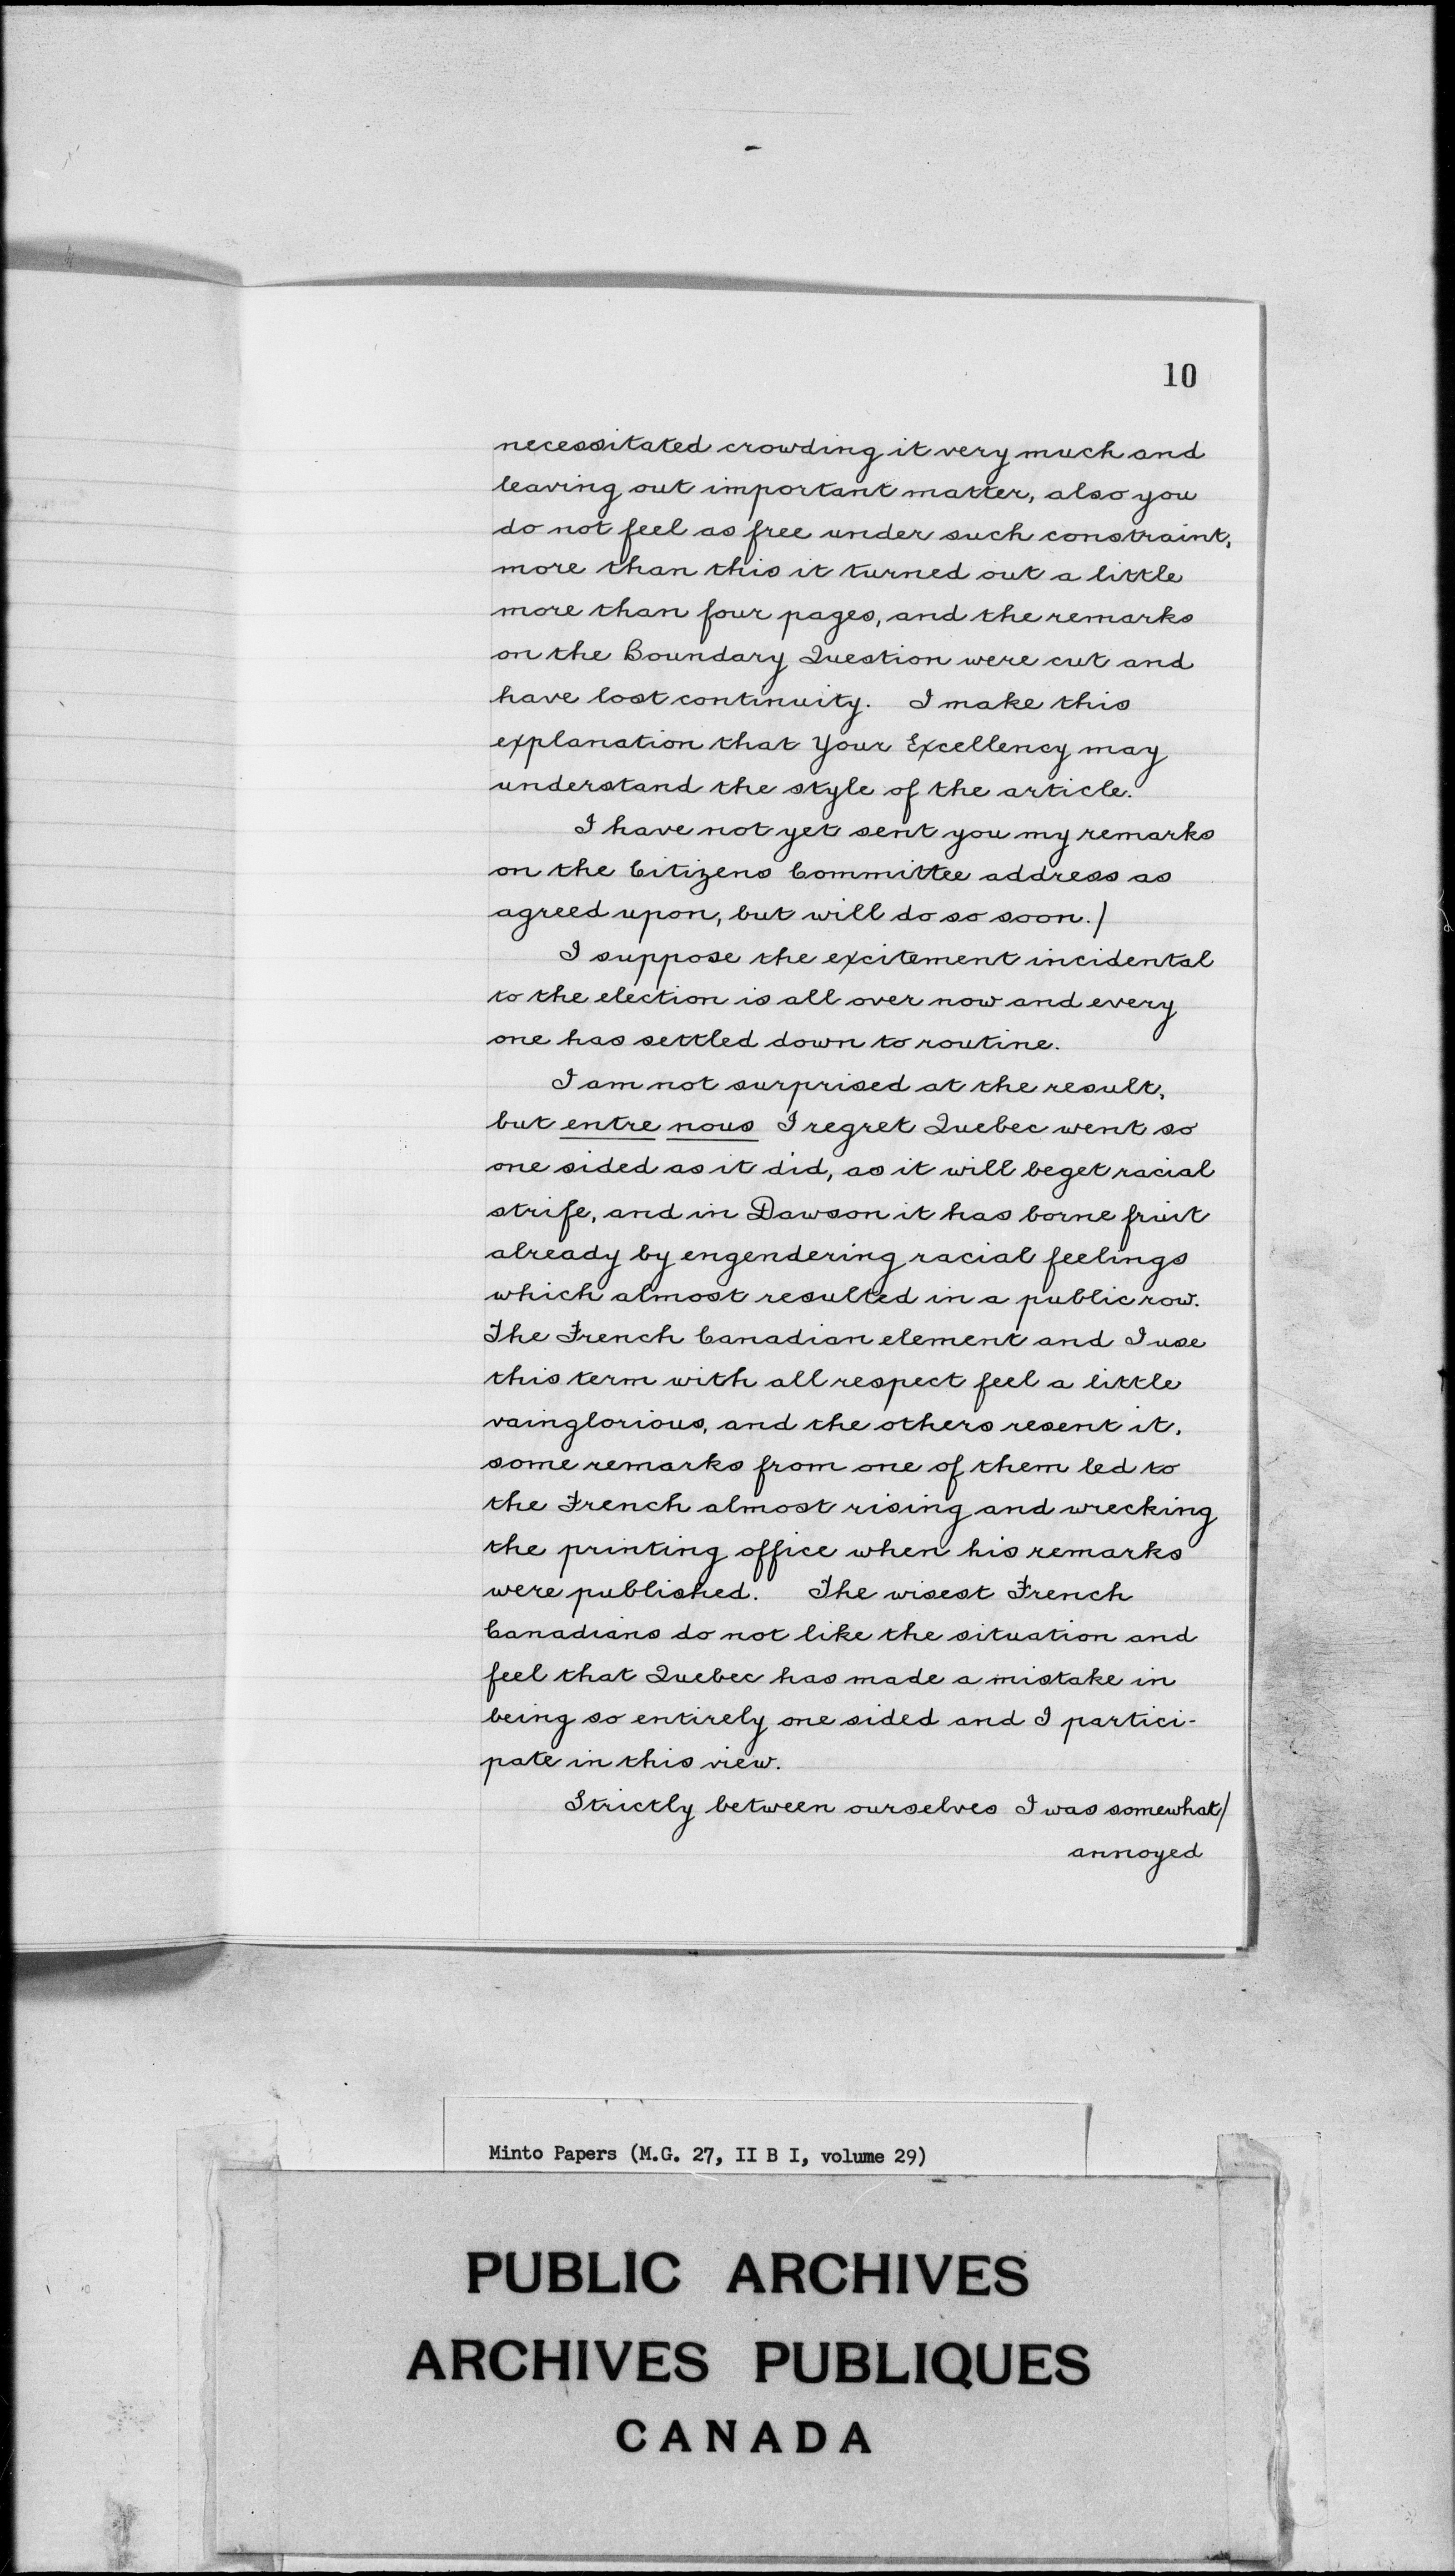 10
necessitated crowding it very much and
leaving out important matter, also you
do not feel as free under such constraint,
more than this it turned out a little
more than four pages, and the remarks
on the Boundary Question were cut and
have lost continuity. I make this
explanation that Your Excellency may
understand the style of the article.
I have not yet sent you my remarks
on the Citizens Committee address as
agreed upon, but will do so soon./
I suppose the excitement incidental
to the election is all over now and every
one has settled down to routine.
I am not surprised at the result,
but entre nous I regret Quebec went so
one sided as it did, as it will beget racial
strife, and in Dawson it has borne fruit
already by engendering racial feelings
which almost resulted in a public row.
The French Canadian element and I use
this term with all respect feel a little
vainglorious, and the others resent it,
some remarks from one of them led to
the French almost rising and wrecking
the printing office when his remarks
were published. The wisest French
Canadians do not like the situation and
feel that Quebec has made a mistake in
being so entirely one sided and I partici-
pate in this view.
Strictly between ourselves I was somewhat/
annoyed
Minto Papers (M.G. 27, II B I, volume 29)
PUBLIC ARCHIVES
ARCHIVES PUBLIQUES
CANADA